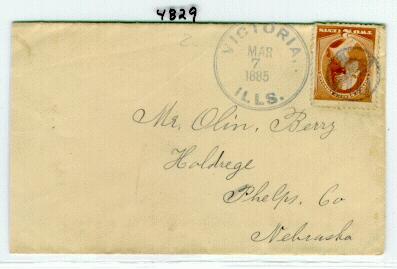 4829
VICTORIA,
MAR
7
1885
ILLS.
TWO CENTS
Mr. Olin, Berry
Holdrege
Phelps, Co
Nebraska